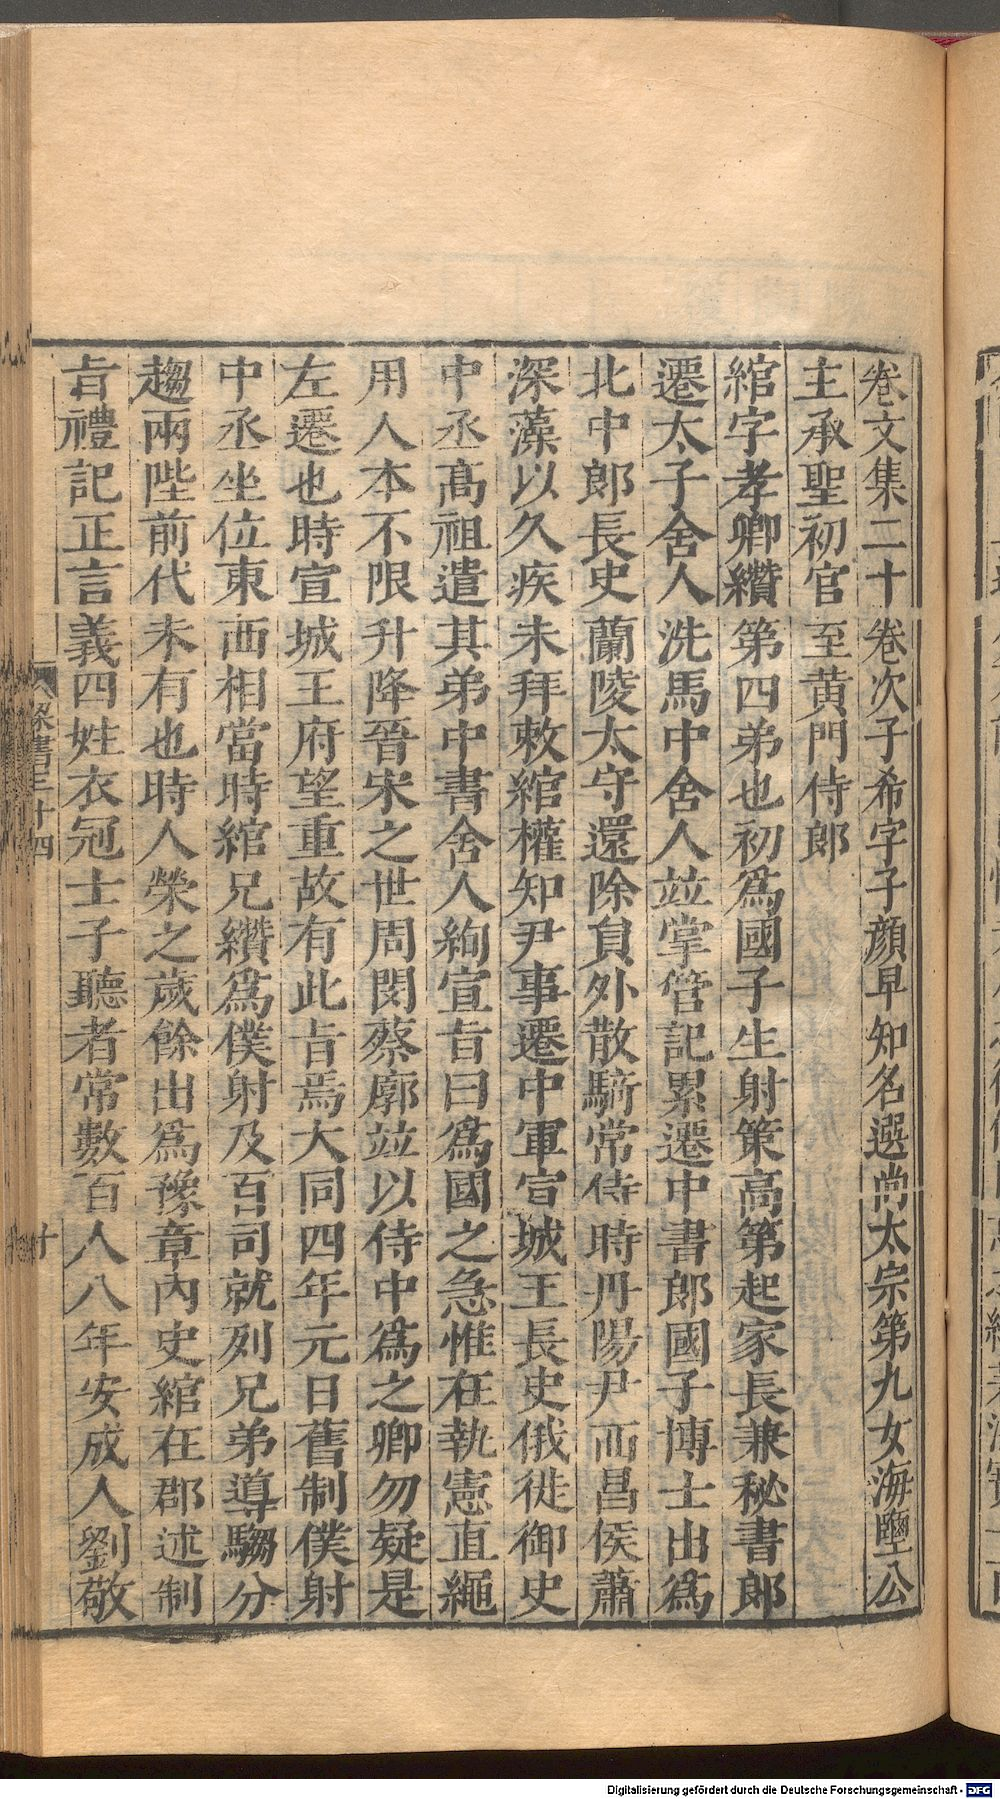 卷文集二十卷次子希字子顏早知名選尚太宗第九女海鹽公
主承聖初官至黃門侍郎
綰字孝卿纘第四弟也初爲國子生射策高第起家長兼秘書郎
遷太子舍人洗馬中舍人竝掌管記累遷中書郎國子博士出爲
北中郎長史蘭陵太守還除負外散騎常侍時丹陽尹西昌侯蕭
深藻以久疾未拜敕綰權知尹事遷中軍宣城王長史俄徙御史
中丞高祖遣其弟中書舍人絢宣旨曰爲國之急惟在執憲直繩
用人本不限升降晉宋之世周閔蔡廓竝以侍中爲之卿勿疑是
左遷也時宣城王府望重故有此旨焉大同四年元日舊制僕射
中丞坐位東西相當時綰兄纘爲僕射及百司就列兄弟導騶分
趨兩陛前代未有也時人榮之歲餘出爲豫章內史綰在郡述制
旨禮記正言義四姓衣冠士子聽者常數百人八年安成人劉敬
梁書三十四
十
Digitalisierung gefördert durch die Deutsche Forschungsgemeinschaft - DFG